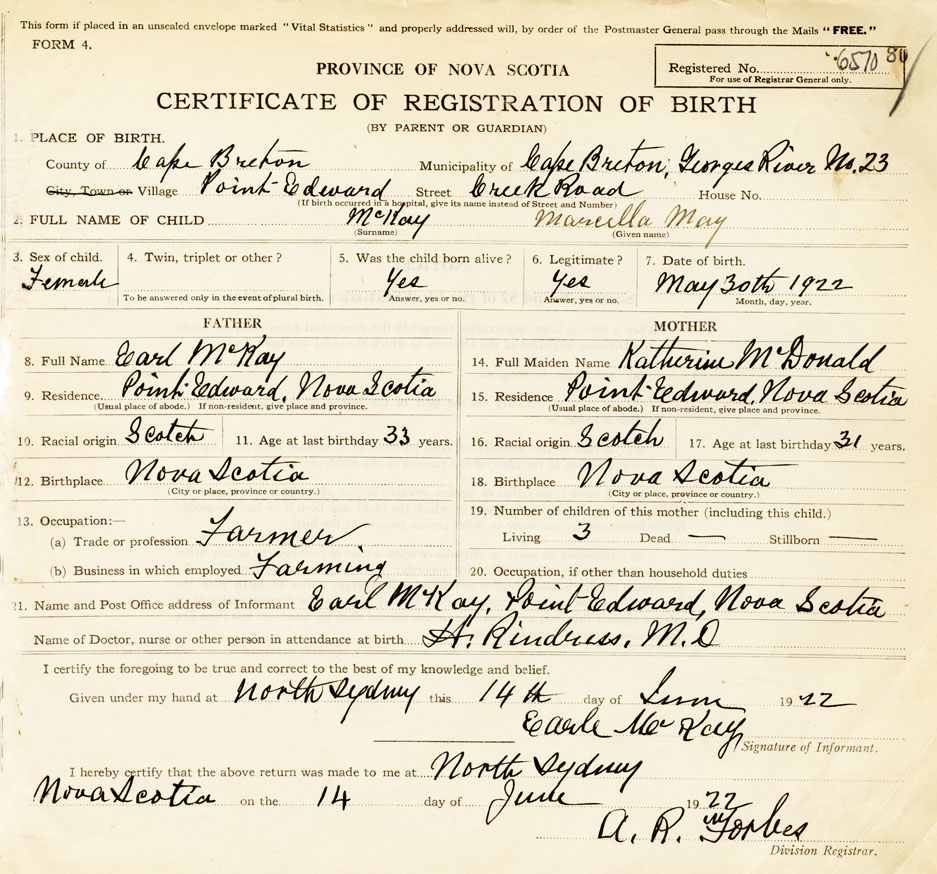 This form if placed in an unsealed envelope marked "Vital Statistics" and properly addressed will, by order of the Postmaster General pass through the Mails "FREE."
FORM 4.
Registered No. 6570 80
For use of Registrar General only.
PROVINCE OF NOVA SCOTIA
CERTIFICATE OF REGISTRATION OF BIRTH
(BY PARENT OR GUARDIAN)
1. PLACE OF BIRTH.
County of Cape Breton Municipality of Cape Breton, Georges River No. 23
City, Town or Village Point Edward Street Creek Road House No.
(If birth occurred in a hospital, give its name instead of Street and Number)
2. FULL NAME OF CHILD McKay Marcella May
(Surname) (Given name)
3. Sex of child. 4. Twin, triplet or other? 5. Was the child born alive? 6. Legitimate? 7. Date of birth.
Female Yes Yes May 30th 1922
To be answered only in the event of plural birth. Answer, yes or no. Answer, yes or no. Month, day, year.
FATHER MOTHER
8. Full Name Earl McKay 14. Full Maiden Name Katherine McDonald
9. Residence. Point Edward, Nova Scotia 15. Residence Point Edward, Nova Scotia
(Usual place of abode.) If non-resident, give place and province. (Usual place of abode.) If non-resident, give place and province.
10. Racial origin Scotch 11. Age at last birthday 33 years. 16. Racial origin Scotch 17. Age at last birthday 31 years.
12. Birthplace Nova Scotia 18. Birthplace Nova Scotia
(City or place, province or country.) (City or place, province or country.)
13. Occupation:— 19. Number of children of this mother (including this child.)
(a) Trade or profession Farmer Living 3 Dead — Stillborn —
(b) Business in which employed Farming 20. Occupation, if other than household duties
21. Name and Post Office address of Informant Earl McKay, Point Edward, Nova Scotia
Name of Doctor, nurse or other person in attendance at birth H. Rindress, M.D
I certify the foregoing to be true and correct to the best of my knowledge and belief.
Given under my hand at North Sydney this 14th day of June 1922
Earle McKay
Signature of Informant.
I hereby certify that the above return was made to me at North Sydney
Nova Scotia on the 14 day of June 1922
A. R. Forbes
Division Registrar.